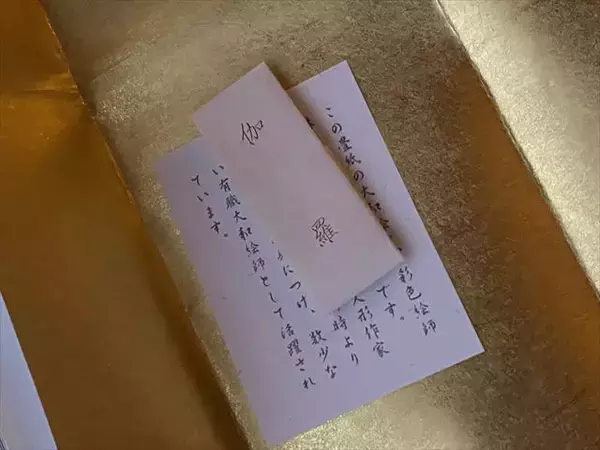 伽羅
この畳紙の大和
彩色絵師
です。
人形作家
時より
につけ、数少な
い有職大和絵師として活躍され
ています。